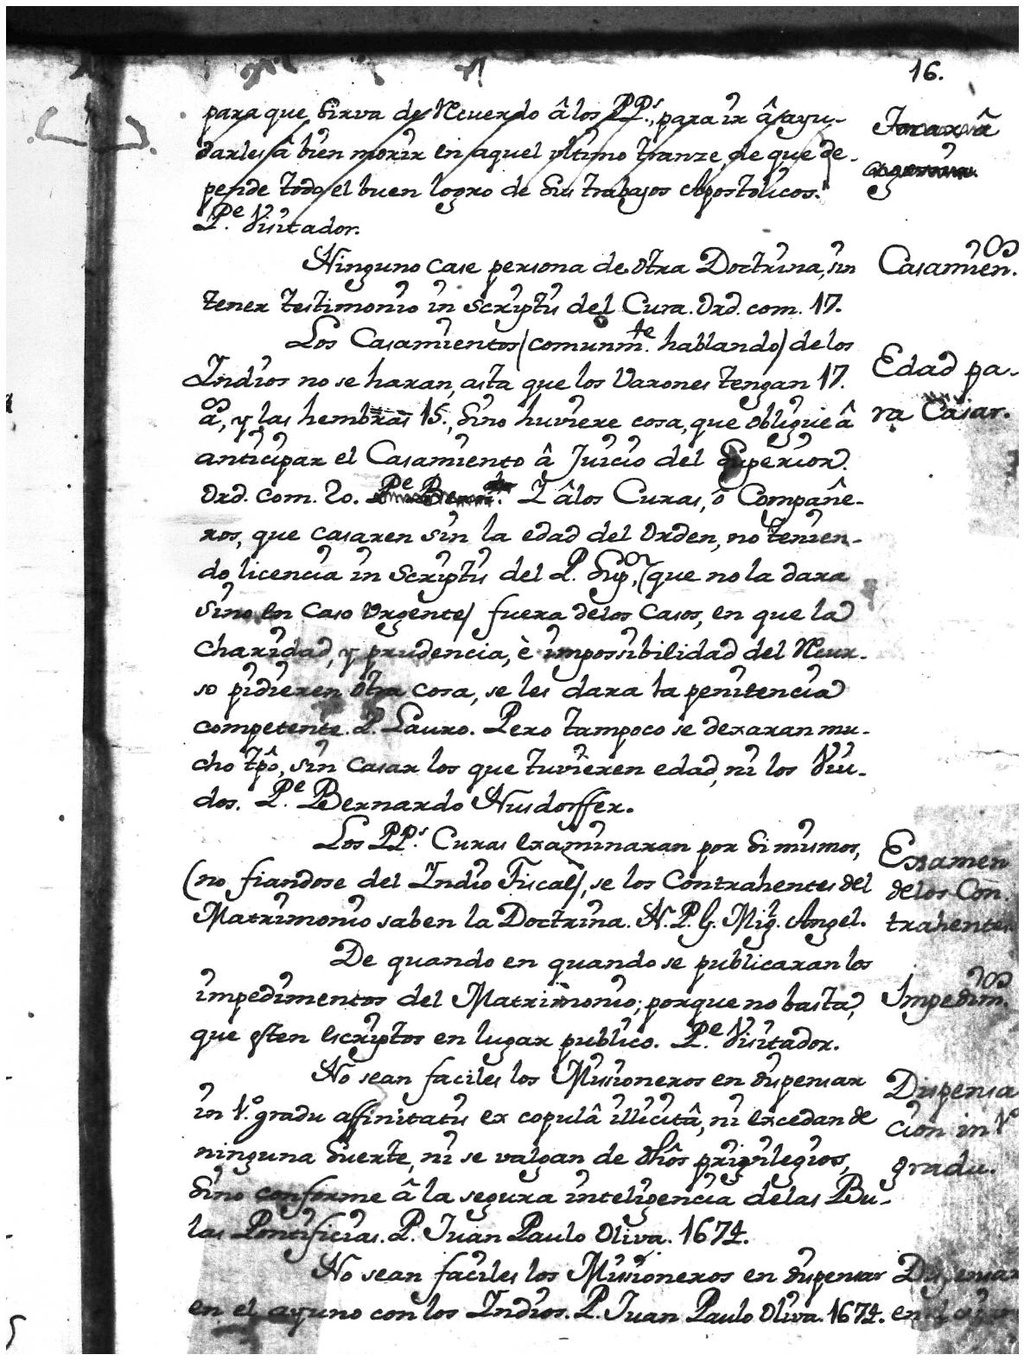 16.
para que sirva de Recuerdo â los PP.s, para ir â ayu-
darles â bien morir en aquel ultimo tranze, de que de-
pende todo el buen logro de sus trabajos Apostolicos.
P.e Visitador.
Ninguno case persona de otra Doctrina, sin
Casamien.os
tener testimonio in Scriptis del Cura. Ord. com. 17.
Los Casamientos (comunm.te hablando) de los
Indios no se haran, asta que los Varones tengan 17.
Edad pa-
a.os, y las hembras 15., sino huviere cosa, que obligue â
ra Casar.
anticipar el Casamiento â Juicio del Superior.
Ord. com. 20. Y â los Curas, ô Compañe-
ros, que casaren sin la edad del Orden, no tenien-
do licencia in Scriptis del P. Sup.or, (que no la dara
sino en caso Urgente) fuera de los casos, en que la
charidad, y prudencia, è impossibilidad del Recur-
so pidieren otra cosa, se les dara la penitencia
competente. P. Lauro. Pero tampoco se dexaran mu-
cho tpô, sin casar los que tuvieren edad, ni los Viu-
dos. P.e Bernardo Nusdorffer.
Los PP.s Curas examinaran por si mismos,
Examen
(no fiandose del Indio Fiscal), se los Contrahentes del
de los Con-
Matrimonio saben la Doctrina. N. P. G. Mig.l Angel.
trahentes
De quando en quando se publicaran los
impedimentos del Matrimonio; porque no basta,
Impedim.os
que esten escriptos en lugar publico. P.e Visitador.
No sean faciles los Missioneros en dispensar
Dispensa
in 1.o gradu affinitatis ex copulâ illicitâ, ni excedan de
cion in 1.o
ninguna suerte, ni se valgan de dhôs privilegios,
gradu.
sino conforme â la segura inteligencia de las Bu-
las Pontificias. P. Juan Paulo Oliva. 1674.
No sean faciles los Missioneros en dispensar
Dispensar
en el ayuno con los Indios. P. Juan Paulo Oliva. 1674.
en el ayun